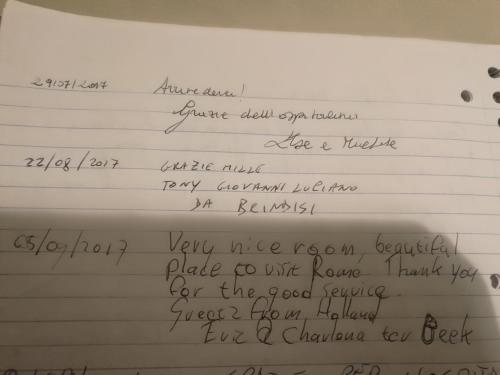 29/07/2017 Arrivederci!
Grazie dell'ospitalità
Ilse e
22/08/2017 GRAZIE MILLE
TONY GIOVANNI LUCIANO
DA BRINDISI
05/09/2017 Very nice room, beautiful
place to visit Rome. Thank you
for the good service.
Guests from Holland